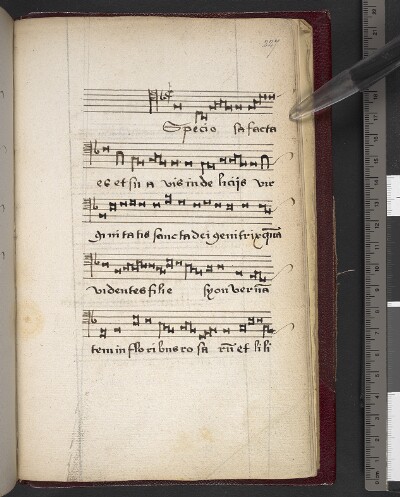 Specio sa facta
es et sua vis in de licijs vir
ginitatis sancta dei genitrix quā
videntes filie syon vernā
tem in floribus rosa rū et lili